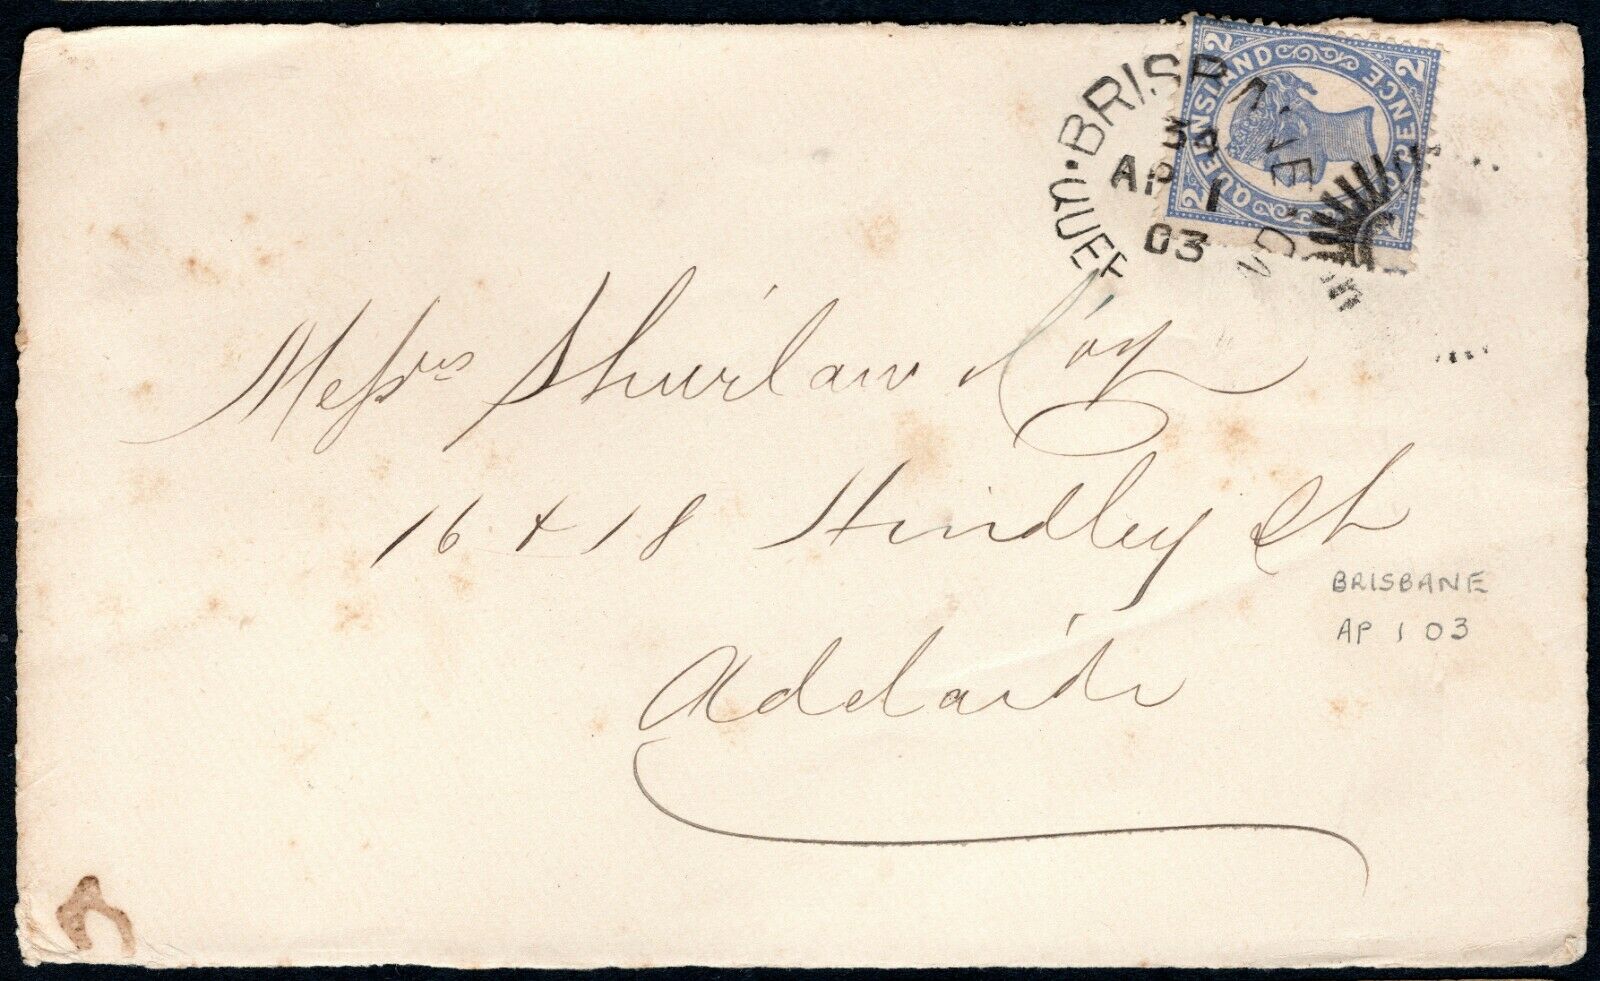 BRISBANE · QUEENSLAND
3A
AP 1
03
QUEENSLAND TWO PENCE
2 2 2 2
Messrs Shurlaw & Coy
16 & 18 Hindley St
Adelaide
BRISBANE
AP 1 03